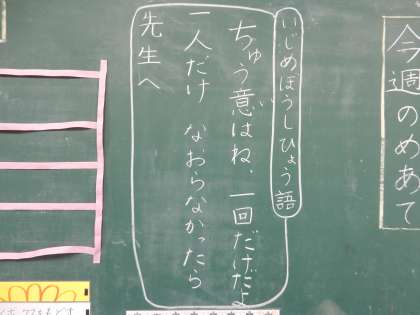 今週のめあて
いじめぼうしひょう語
ちゅう意はね、一回だけだよ
一人だけ なおらなかったら
先生へ